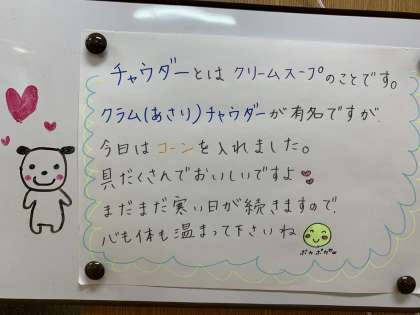 チャウダーとは クリームスープのことです。
クラム(あさり)チャウダーが有名ですが
今日はコーンを入れました。
具だくさんでおいしいですよ
まだまだ寒い日が続きますので、
心も体も温まって下さいね
ポカポカ